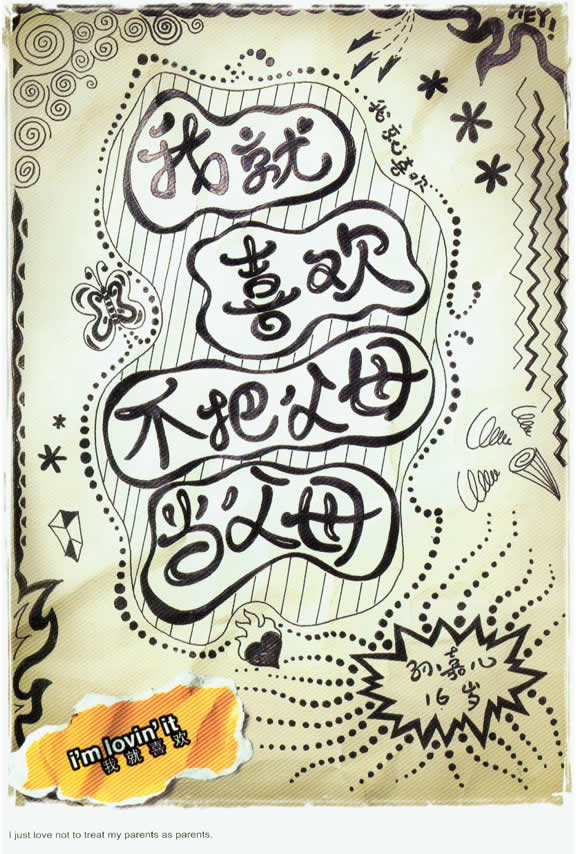 HEY!
我就喜欢
我就
喜欢
不把父母
当父母
孙嘉心
16岁
i'm lovin' it
我就喜欢
I just love not to treat my parents as parents.